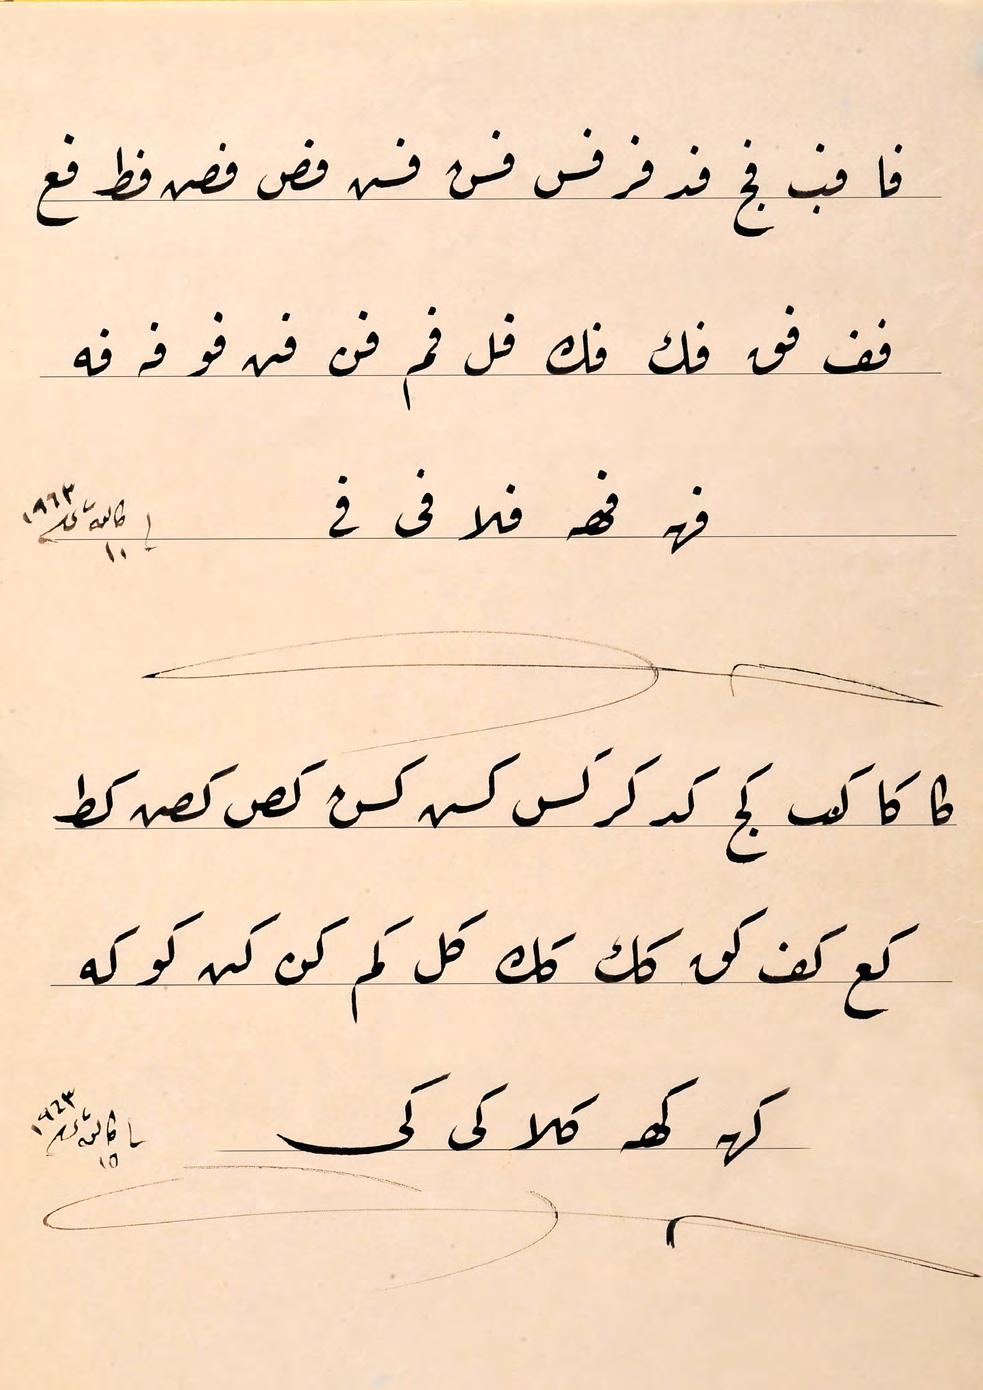 فا فب فج فد فر فس فس فس فص فص فط فع
فف فق فك فك فل فم فن فن فو فه فه
فهـ فهـ فلا فى فے
١٩٦٣
١٠
كا كا كب كج كد كر كس كس كس كص كص كط
كع كف كق كك كك كل كم كن كن كو كه
كهـ كهـ كلا كى كى
١٩٦٣
١٥